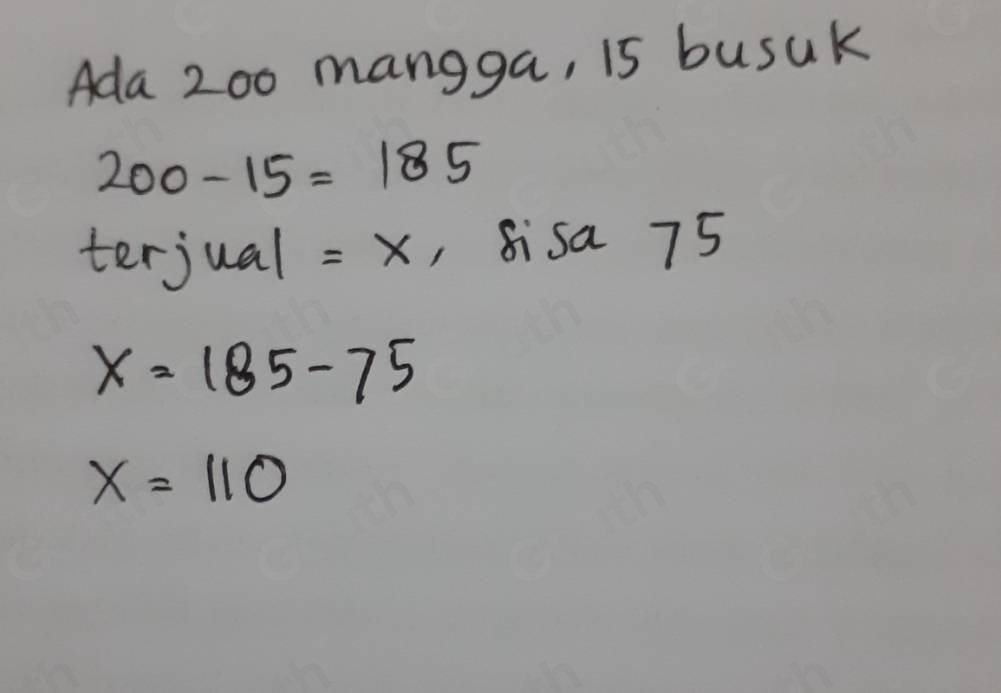 Ada 200 mangga, 15 busuk
200 - 15 = 185
terjual = x, sisa 75
x = 185 - 75
x = 110